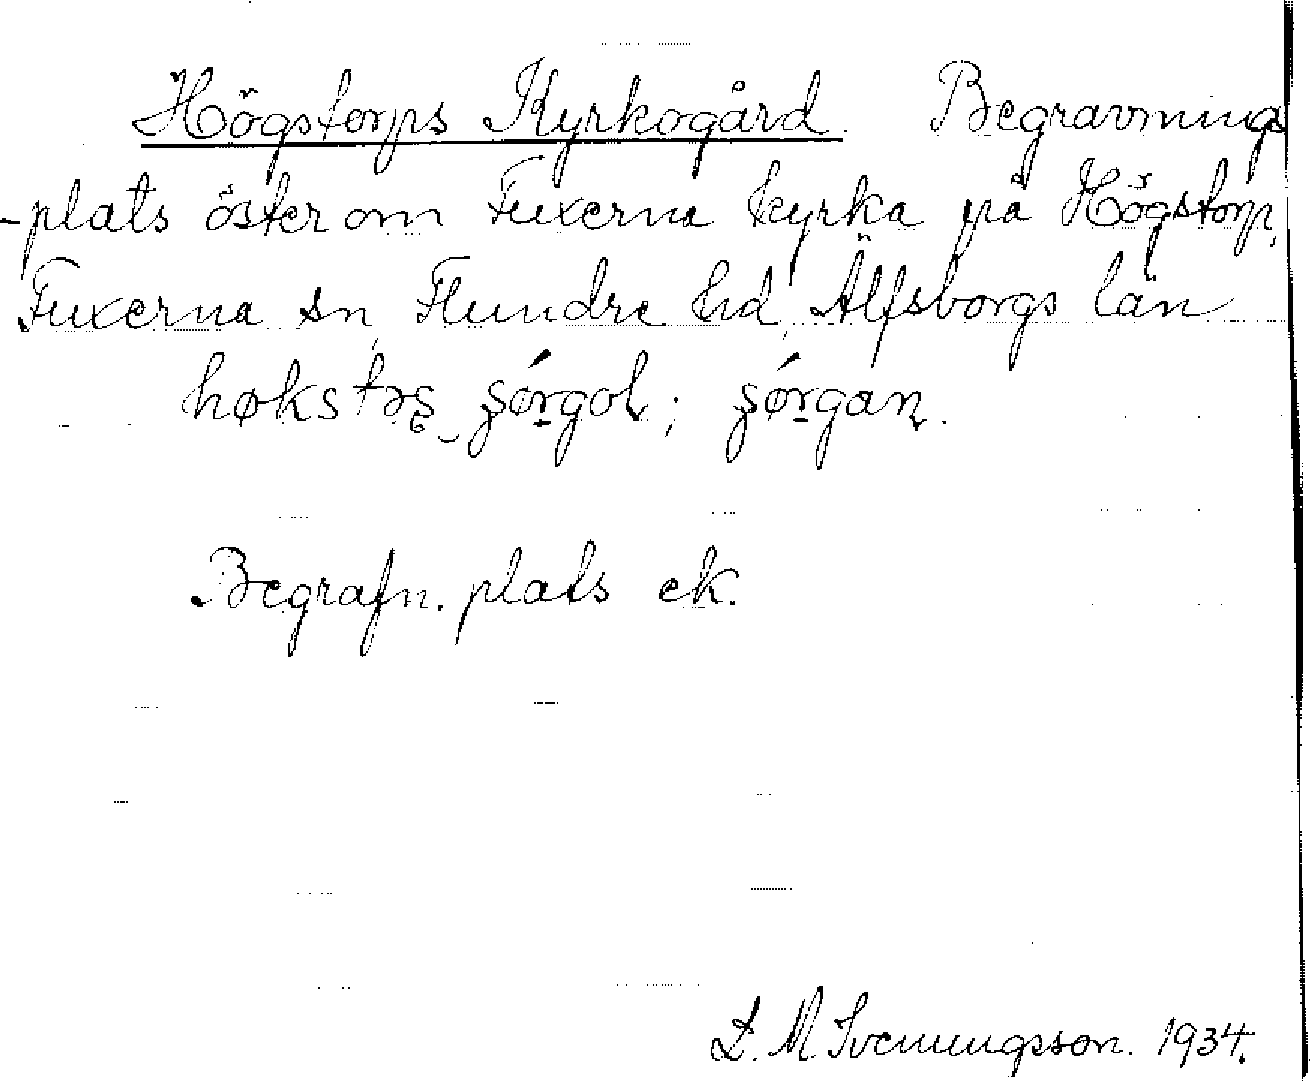 Högstorps Kyrkogård. Begravnings
-plats öster om Fuxerna kyrka på Högstorp,
Fuxerna sn, Flundre hd, Älfsborgs län
Begrafn. plats ek.
L. M Svenungsson. 1934.